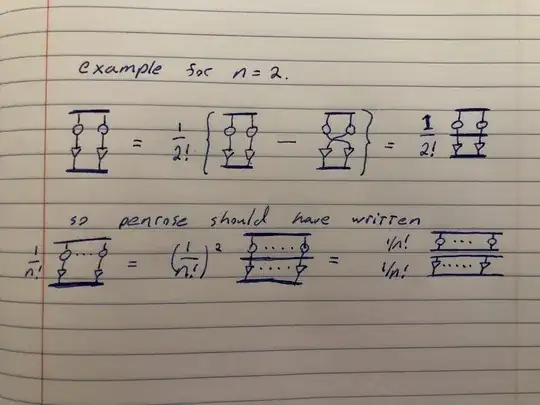 example for n = 2.
= 1/2! { − } = 1/2!
so penrose should have written
1/n! = (1/n!)² = 1/n! 1/n!